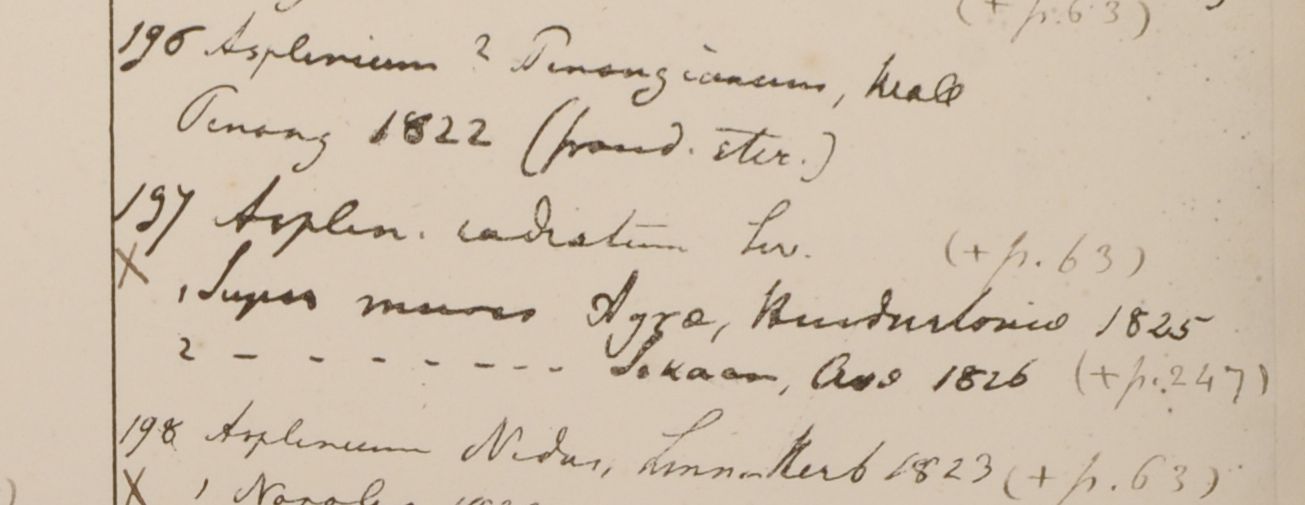 (+ p. 63)
196 Asplenium ? Penangianum, Wall
Penang 1822 (frond. ster.)
197 Asplen. radiatum Sw. (+ p. 63)
X 1 Supra muros Agra, Hindustoniae 1825
2 - - - - - - - - Sekaan, Ava 1826 (+ p. 247)
198 Asplenium Nidus, Linn. Herb 1823 (+ p. 63)
X 1